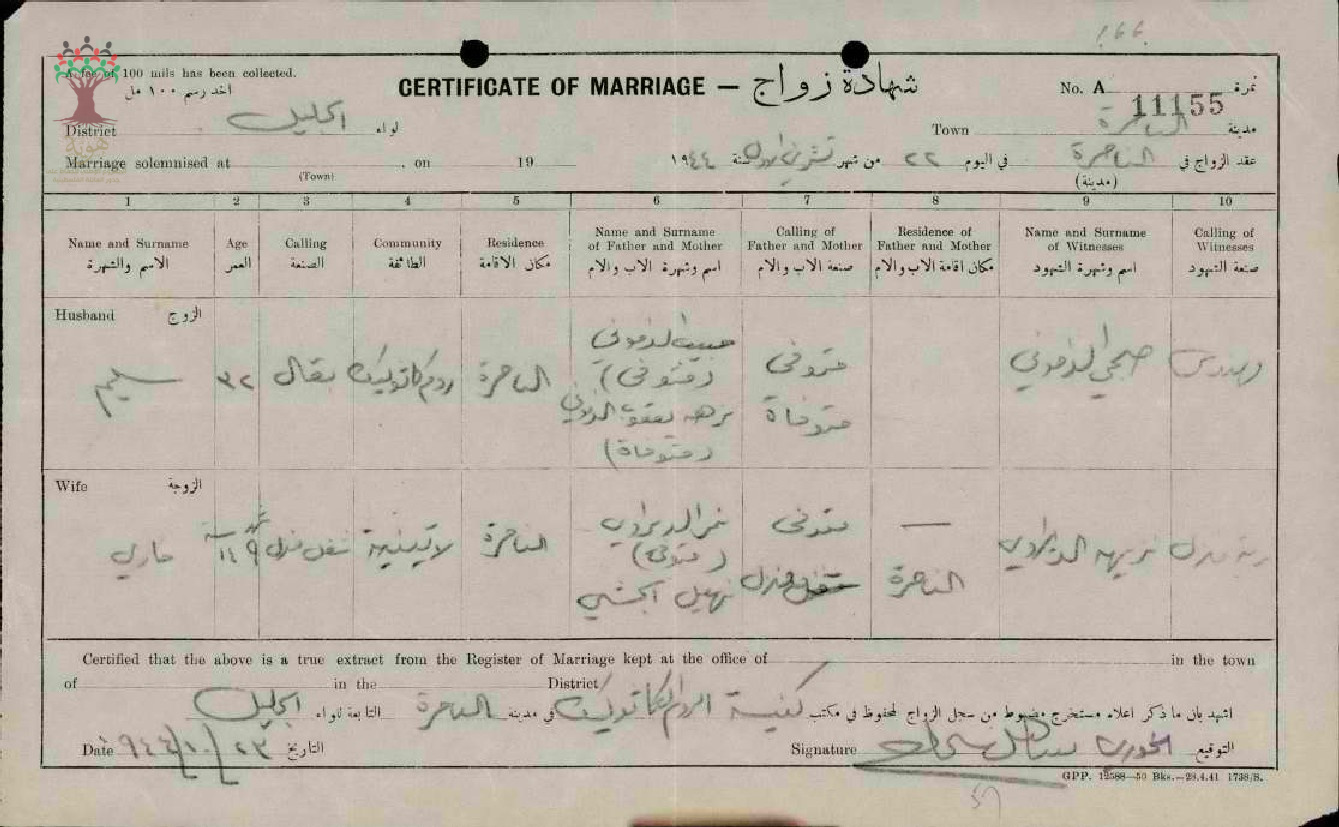 ١٦٦
A fee of 100 mils has been collected.
اخذ رسم ١٠٠ مل
CERTIFICATE OF MARRIAGE — شهادة زواج
No. A 11155 نمرة
District الجليل لواء
Town الناصرة مدينة
Marriage solemnised at , on 19
(Town)
عقد الزواج في الناصرة في اليوم ٢٢ من شهر تشرين اول سنة ١٩٤٤
(مدينة)
1 2 3 4 5 6 7 8 9 10
Name and Surname
الاسم والشهرة
Age
العمر
Calling
الصنعة
Community
الطائفة
Residence
مكان الاقامة
Name and Surname
of Father and Mother
اسم وشهرة الاب والام
Calling of
Father and Mother
صنعة الاب والام
Residence of
Father and Mother
مكان اقامة الاب والام
Name and Surname
of Witnesses
اسم وشهرة الشهود
Calling of
Witnesses
صنعة الشهود
Husband الزوج
سليم
٣٢
بقال
روم كاثوليك
الناصرة
حبيب
(متوفي)
نزهه يعقوب
(متوفاة)
متوفى
متوفاة
صبحي
Wife الزوجة
ماري
١٤ سنة
٩
شغل منزل
لاتينية
الناصرة
نمر الديراوي
(متوفي)
متوفى
شغل منزل
—
الناصرة
نزيهه الديراوي
Certified that the above is a true extract from the Register of Marriage kept at the office of in the town
of in the District
اشهد بان ما ذكر اعلاه مستخرج مضبوط من سجل الزواج المحفوظ في مكتب كنيسة الروم الكاثوليك في مدينة الناصرة التابعة للواء الجليل
Date ٩٤٤/١٠/٢٣ التاريخ
Signature الخوري التوقيع
GPP. 12588—50 Bks.—28.4.41 1738/B.